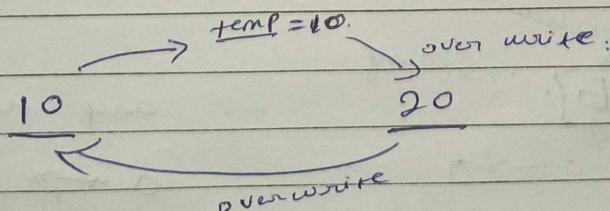 temp = 10.
over write.
10
20
overwrite